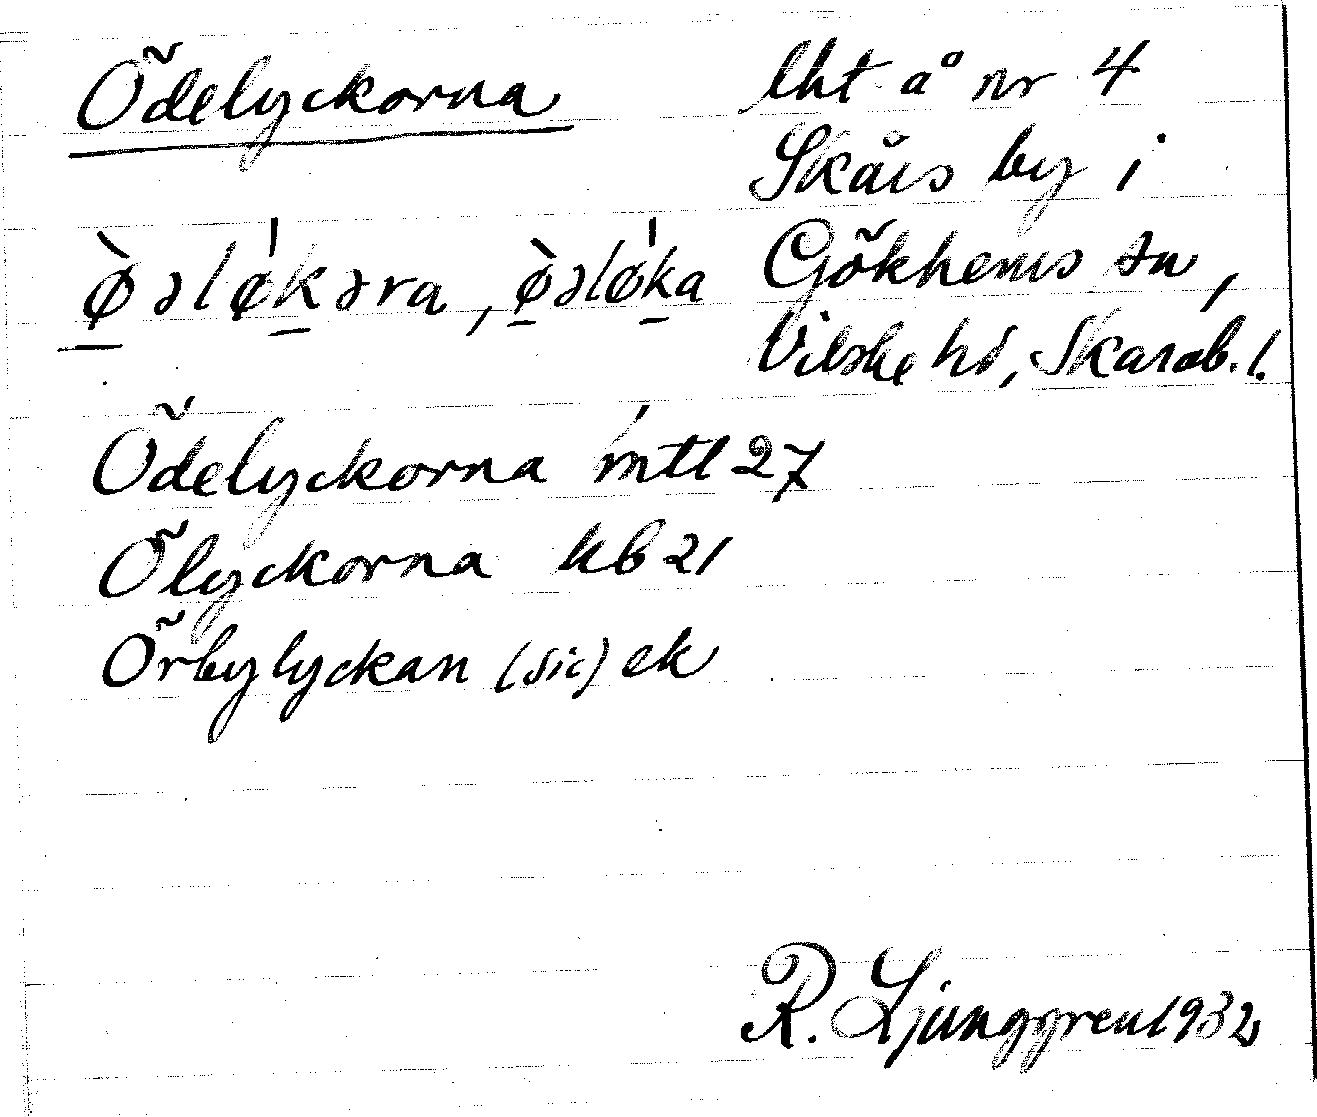 Ödelyckorna
lht å nr 4
Skårs by i
Gökhems sn,
Vilske hd, Skarab. l.
ø̀əløkəra, ø̀əløka
Ödelyckorna mtl 27
Ölyckorna kb 21
Örbylyckan (sic) ek
R. Ljunggren 1932